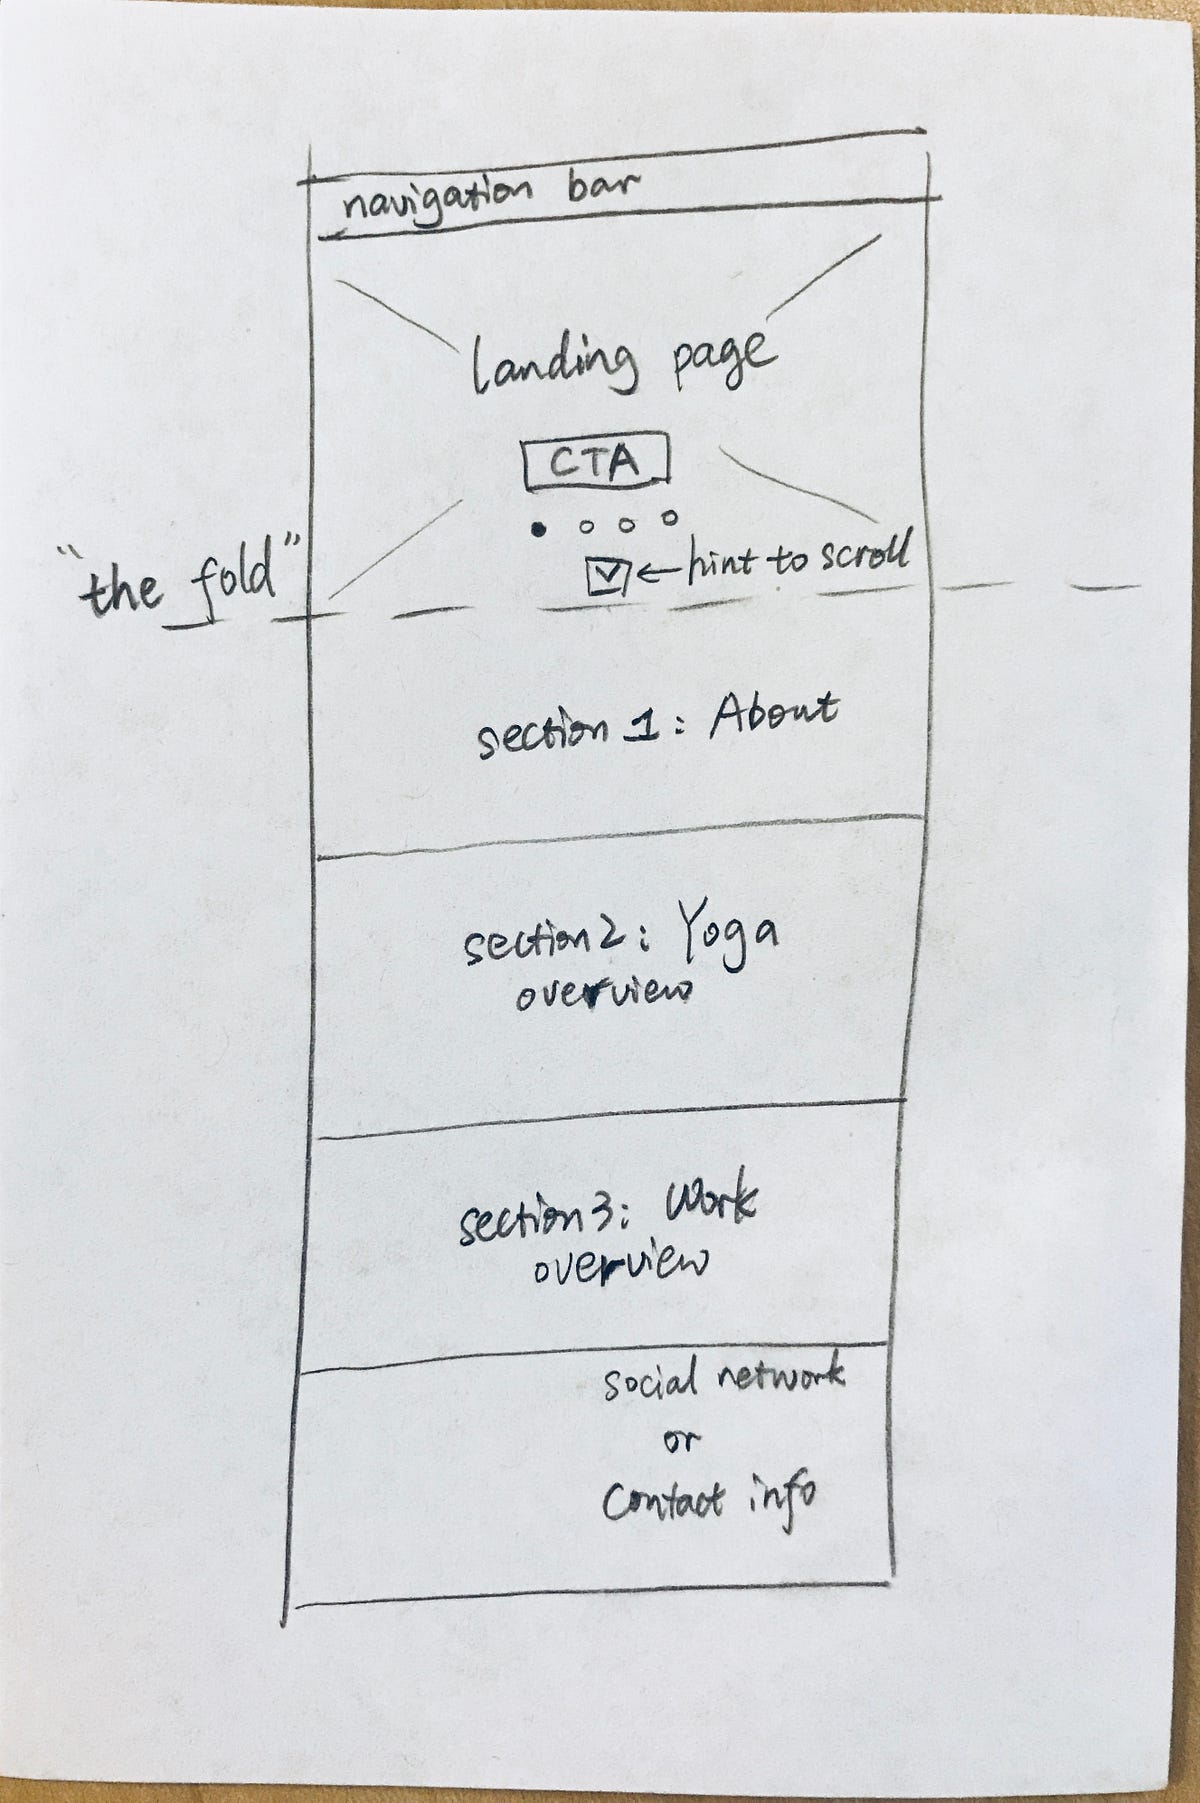 navigation bar
landing page
CTA
← hint to scroll
"the fold"
section 1: About
section 2: Yoga
overview
section 3: Work
overview
social network
or
Contact info